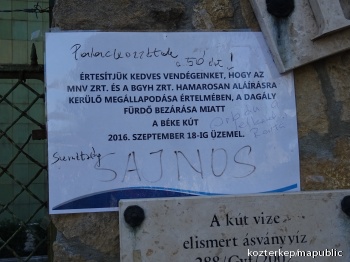 Palackoztuk
a 50 dt !
ÉRTESÍTJÜK KEDVES VENDÉGEINKET, HOGY AZ
MNV ZRT. ÉS A BGYH ZRT. HAMAROSAN ALÁÍRÁSRA
KERÜLŐ MEGÁLLAPODÁSA ÉRTELMÉBEN, A DAGÁLY
FÜRDŐ BEZÁRÁSA MIATT
A BÉKE KÚT
2016. SZEPTEMBER 18-IG ÜZEMEL.
SAJNOS
A kút vize
elismert ásványvíz
kozterkep/mapublic